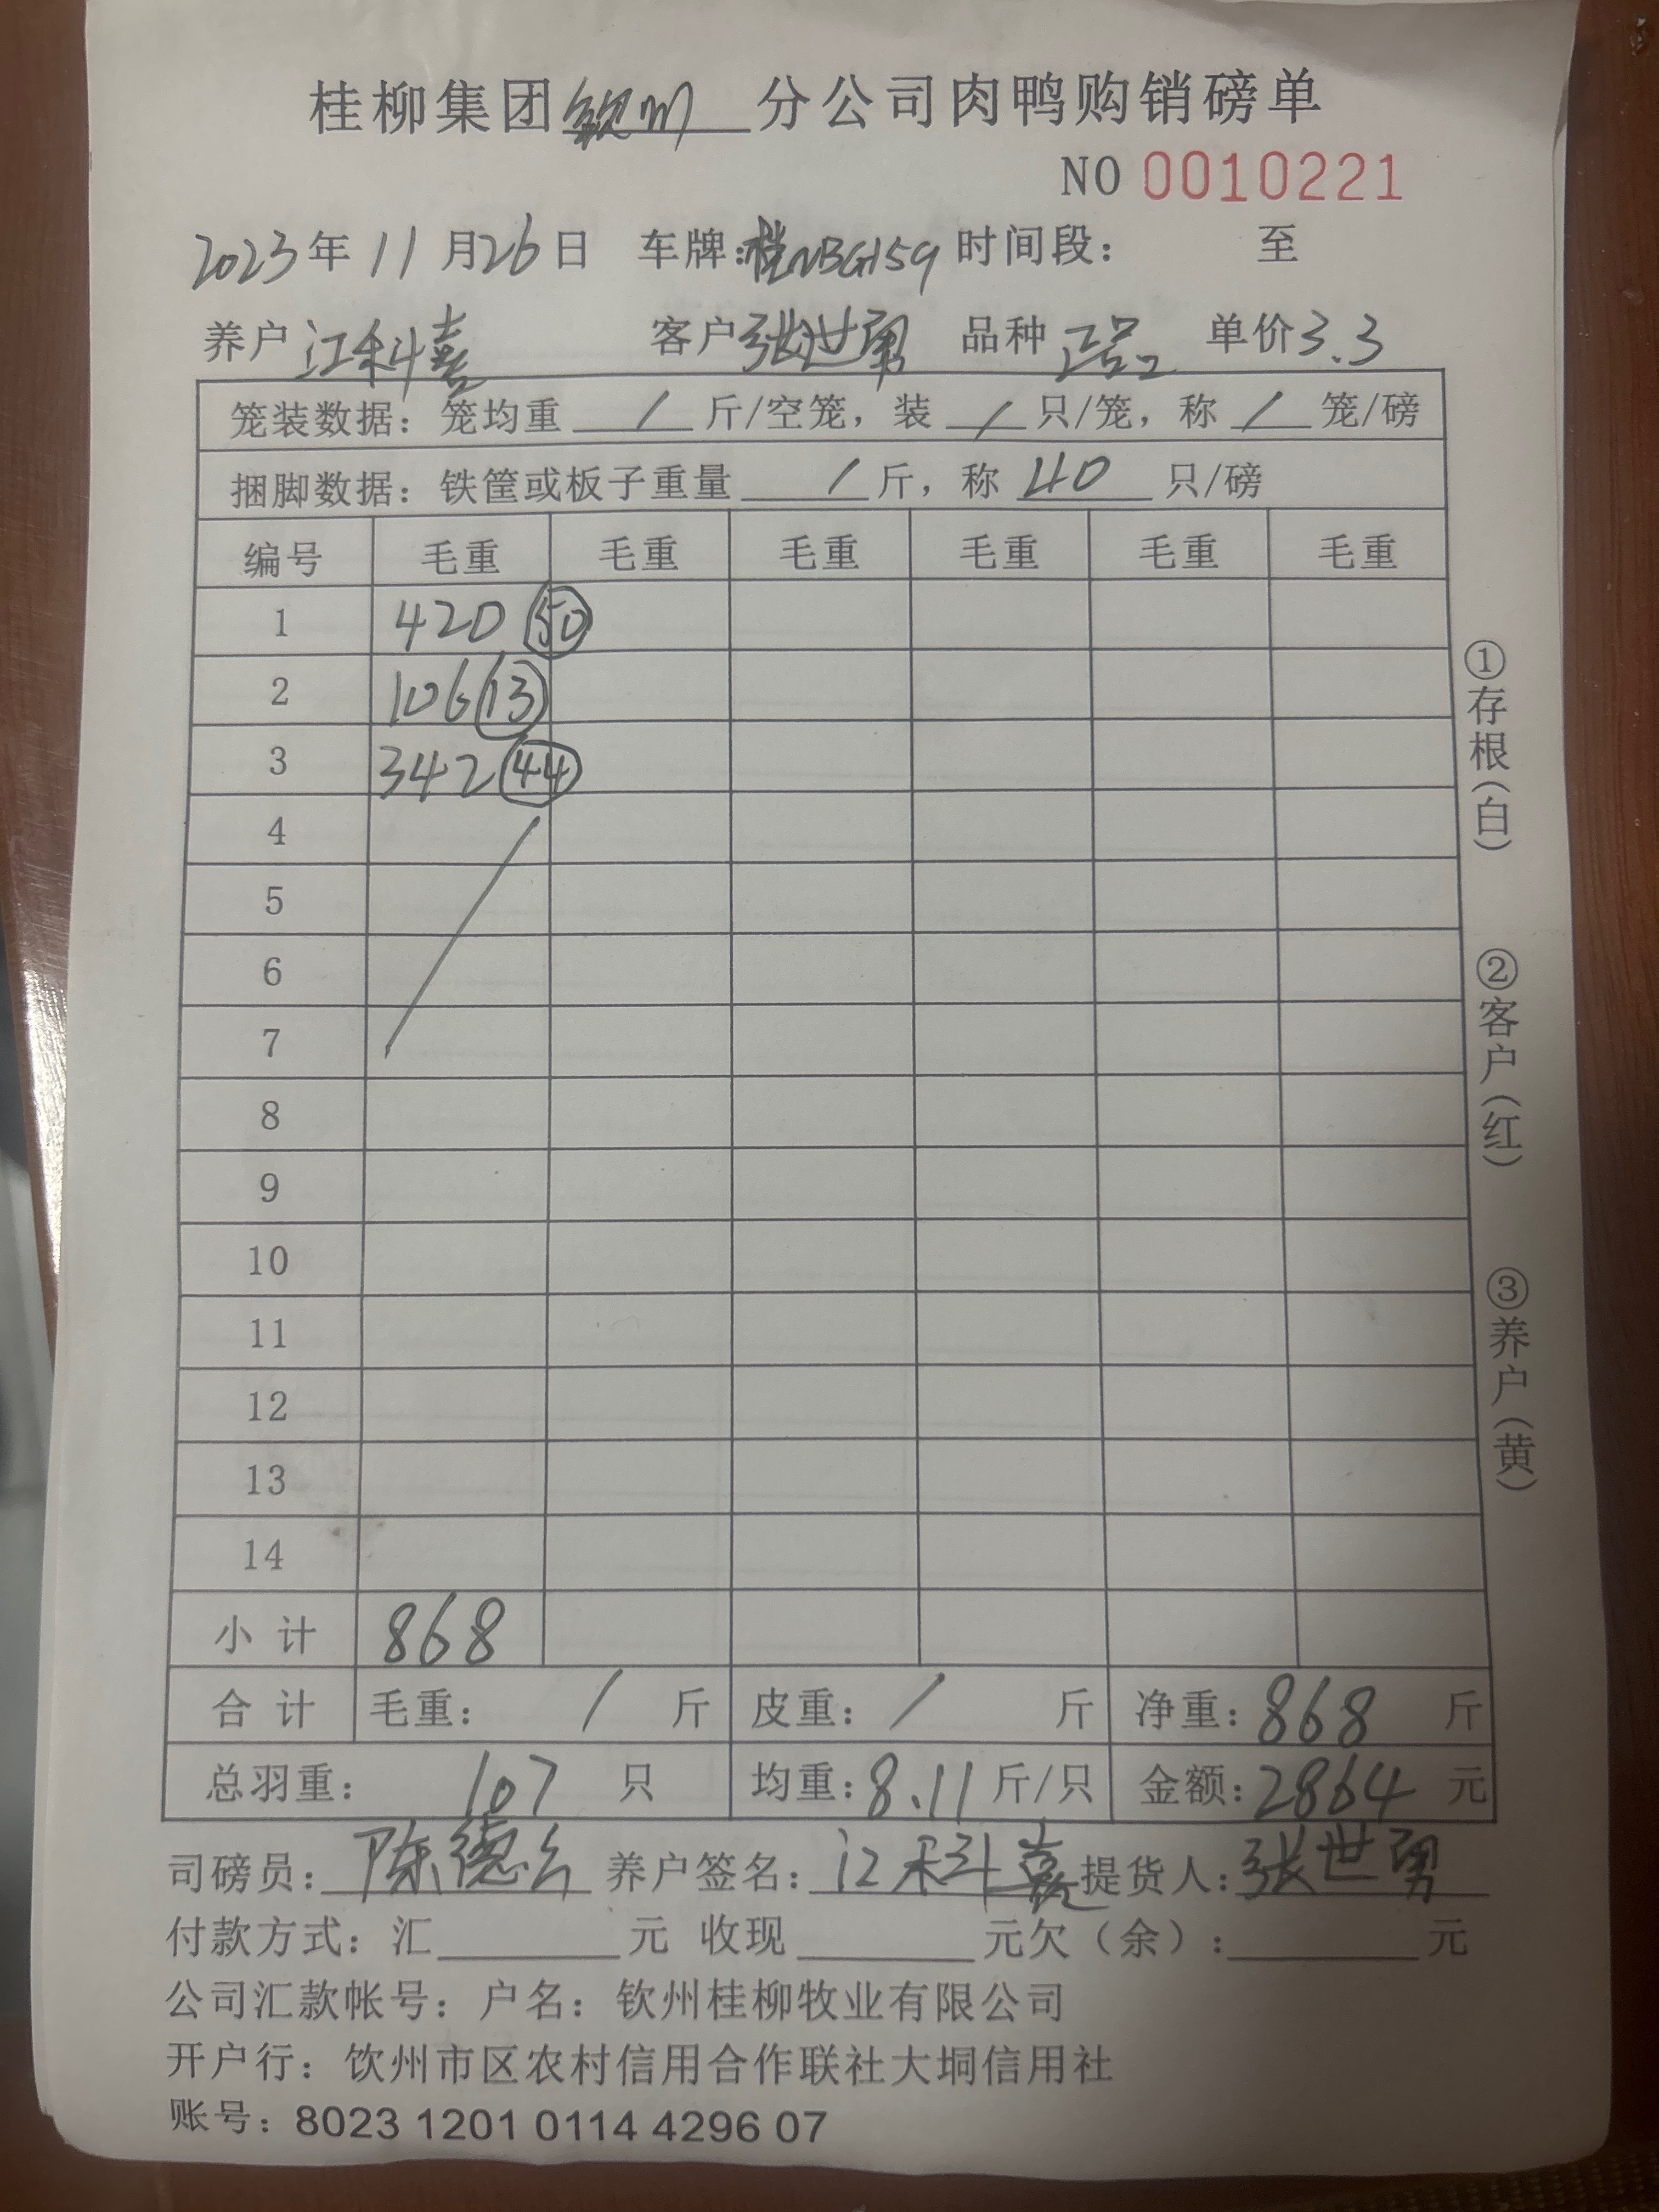 桂柳集团钦州分公司肉鸭购销磅单
NO 0010221
2023年11月26日 车牌:桂NBG159 时间段: 至
养户 江科喜 客户张世勇 品种 正品 单价3.3
笼装数据: 笼均重 / 斤/空笼, 装 / 只/笼, 称 / 笼/磅
捆脚数据: 铁筐或板子重量 / 斤, 称 40 只/磅
编号 毛重 毛重 毛重 毛重 毛重 毛重
1 420 50
2 106 13
3 342 44
4
5
6
7
8
9
10
11
12
13
14
小计 868
合计 毛重: / 斤 皮重: / 斤 净重: 868 斤
总羽重: 107 只 均重: 8.11 斤/只 金额: 2864 元
司磅员: 陈德 养户签名: 江科喜 提货人: 张世勇
付款方式: 汇 元 收现 元欠(余): 元
公司汇款帐号: 户名: 钦州桂柳牧业有限公司
开户行: 钦州市区农村信用合作联社大垌信用社
账号: 8023 1201 0114 4296 07
①存根(白)
②客户(红)
③养户(黄)